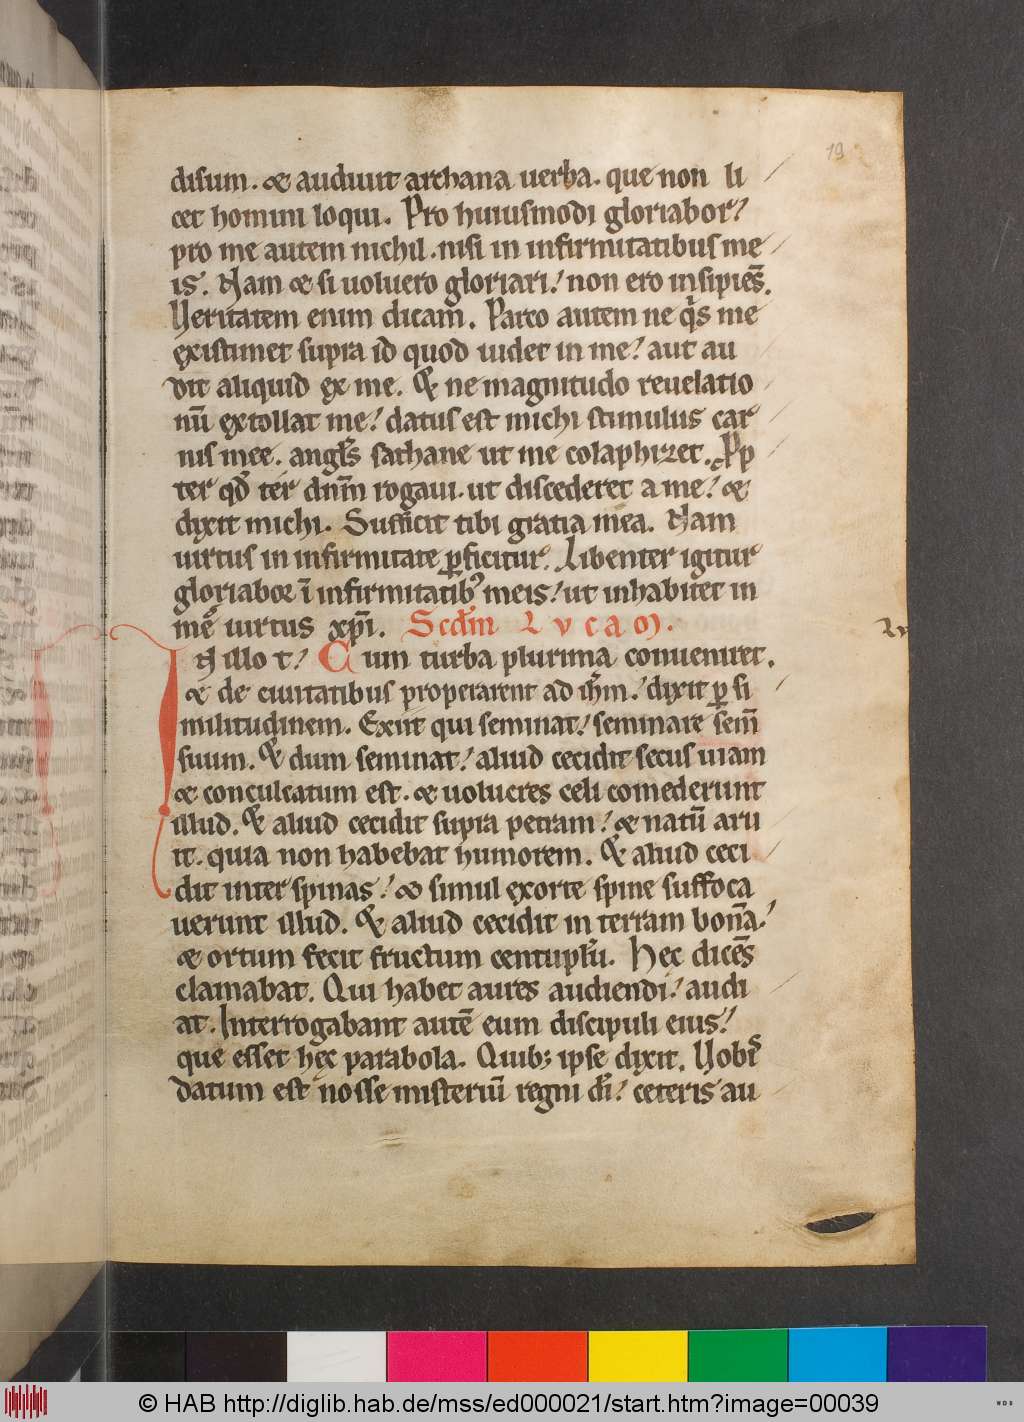 19
disum. & audiuit archana uerba. que non li
cet homini loqui. Pro huiusmodi gloriabor:
pro me autem nichil. nisi in infirmitatibus me
is. Nam & si uoluero gloriari: non ero insipiēs.
Ueritatem enim dicam. Parco autem ne qͥs me
existimet supra id quod uidet in me: aut au
dit aliquid ex me. Et ne magnitudo reuelatio
nū extollat me: datus est michi stimulus car
nis mee. angl̄s sathane ut me colaphizet. Pp
ter qd̄ ter dn̄m rogaui. ut discederet a me: &
dixit michi. Sufficit tibi gratia mea. Nam
uirtus in infirmitate ꝑficitur. Libenter igitur
gloriabor ī infirmitatibꝰ meis: ut inhabitet in
me uirtus xp̄i. Scdm̄ Lvcam.
In illo t: Cum turba plurima conueniret.
& de ciuitatibus properarent ad ih̄m: dixit ꝑ si
militudinem. Exiit qui seminat: seminare sem̄
suum. Et dum seminat: aliud cecidit secus uiam
& conculcatum est. & uolucres celi comederunt
illud. Et aliud cecidit supra petram: & natū aru
it. quia non habebat humorem. Et aliud ceci
dit inter spinas: & simul exorte spine suffoca
uerunt illud. Et aliud cecidit in terram bonā:
& ortum fecit fructum centuplū. Hec dicēs
clamabat. Qui habet aures audiendi: audi
at. Interrogabant autē eum discipuli eius:
que esset hec parabola. Quibꝫ ipse dixit. Uobis
datum est nosse misteriū regni di̅: ceteris au
© HAB http://diglib.hab.de/mss/ed000021/start.htm?image=00039